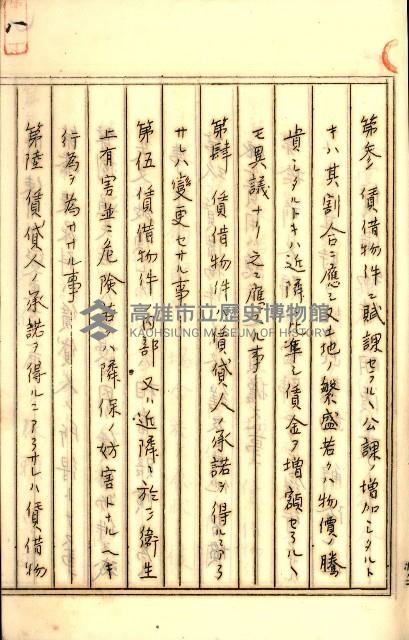 第參 賃借物件ニ賦課セラルヽ公課ノ増加シタルト
キハ其割合ニ應シ又土地ノ繁盛若クハ物價ノ騰
貴シタルトキハ近隣ニ準シ賃金ヲ増額セラルヽ
モ異議ナク之ニ應スル事
第肆 賃借物件ハ賃貸人ノ承諾ヲ得ルニアラ
サレハ變更セサル事
第伍 賃借物件ノ内部又ハ近隣ニ於テ衛生
上有害並ニ危険若クハ隣保ノ妨害トナルヘキ
行為ヲ為ササル事
第陸 賃貸人ノ承諾ヲ得ルニアラサレハ賃借物
高雄市立歷史博物館
KAOHSIUNG MUSEUM OF HISTORY
八